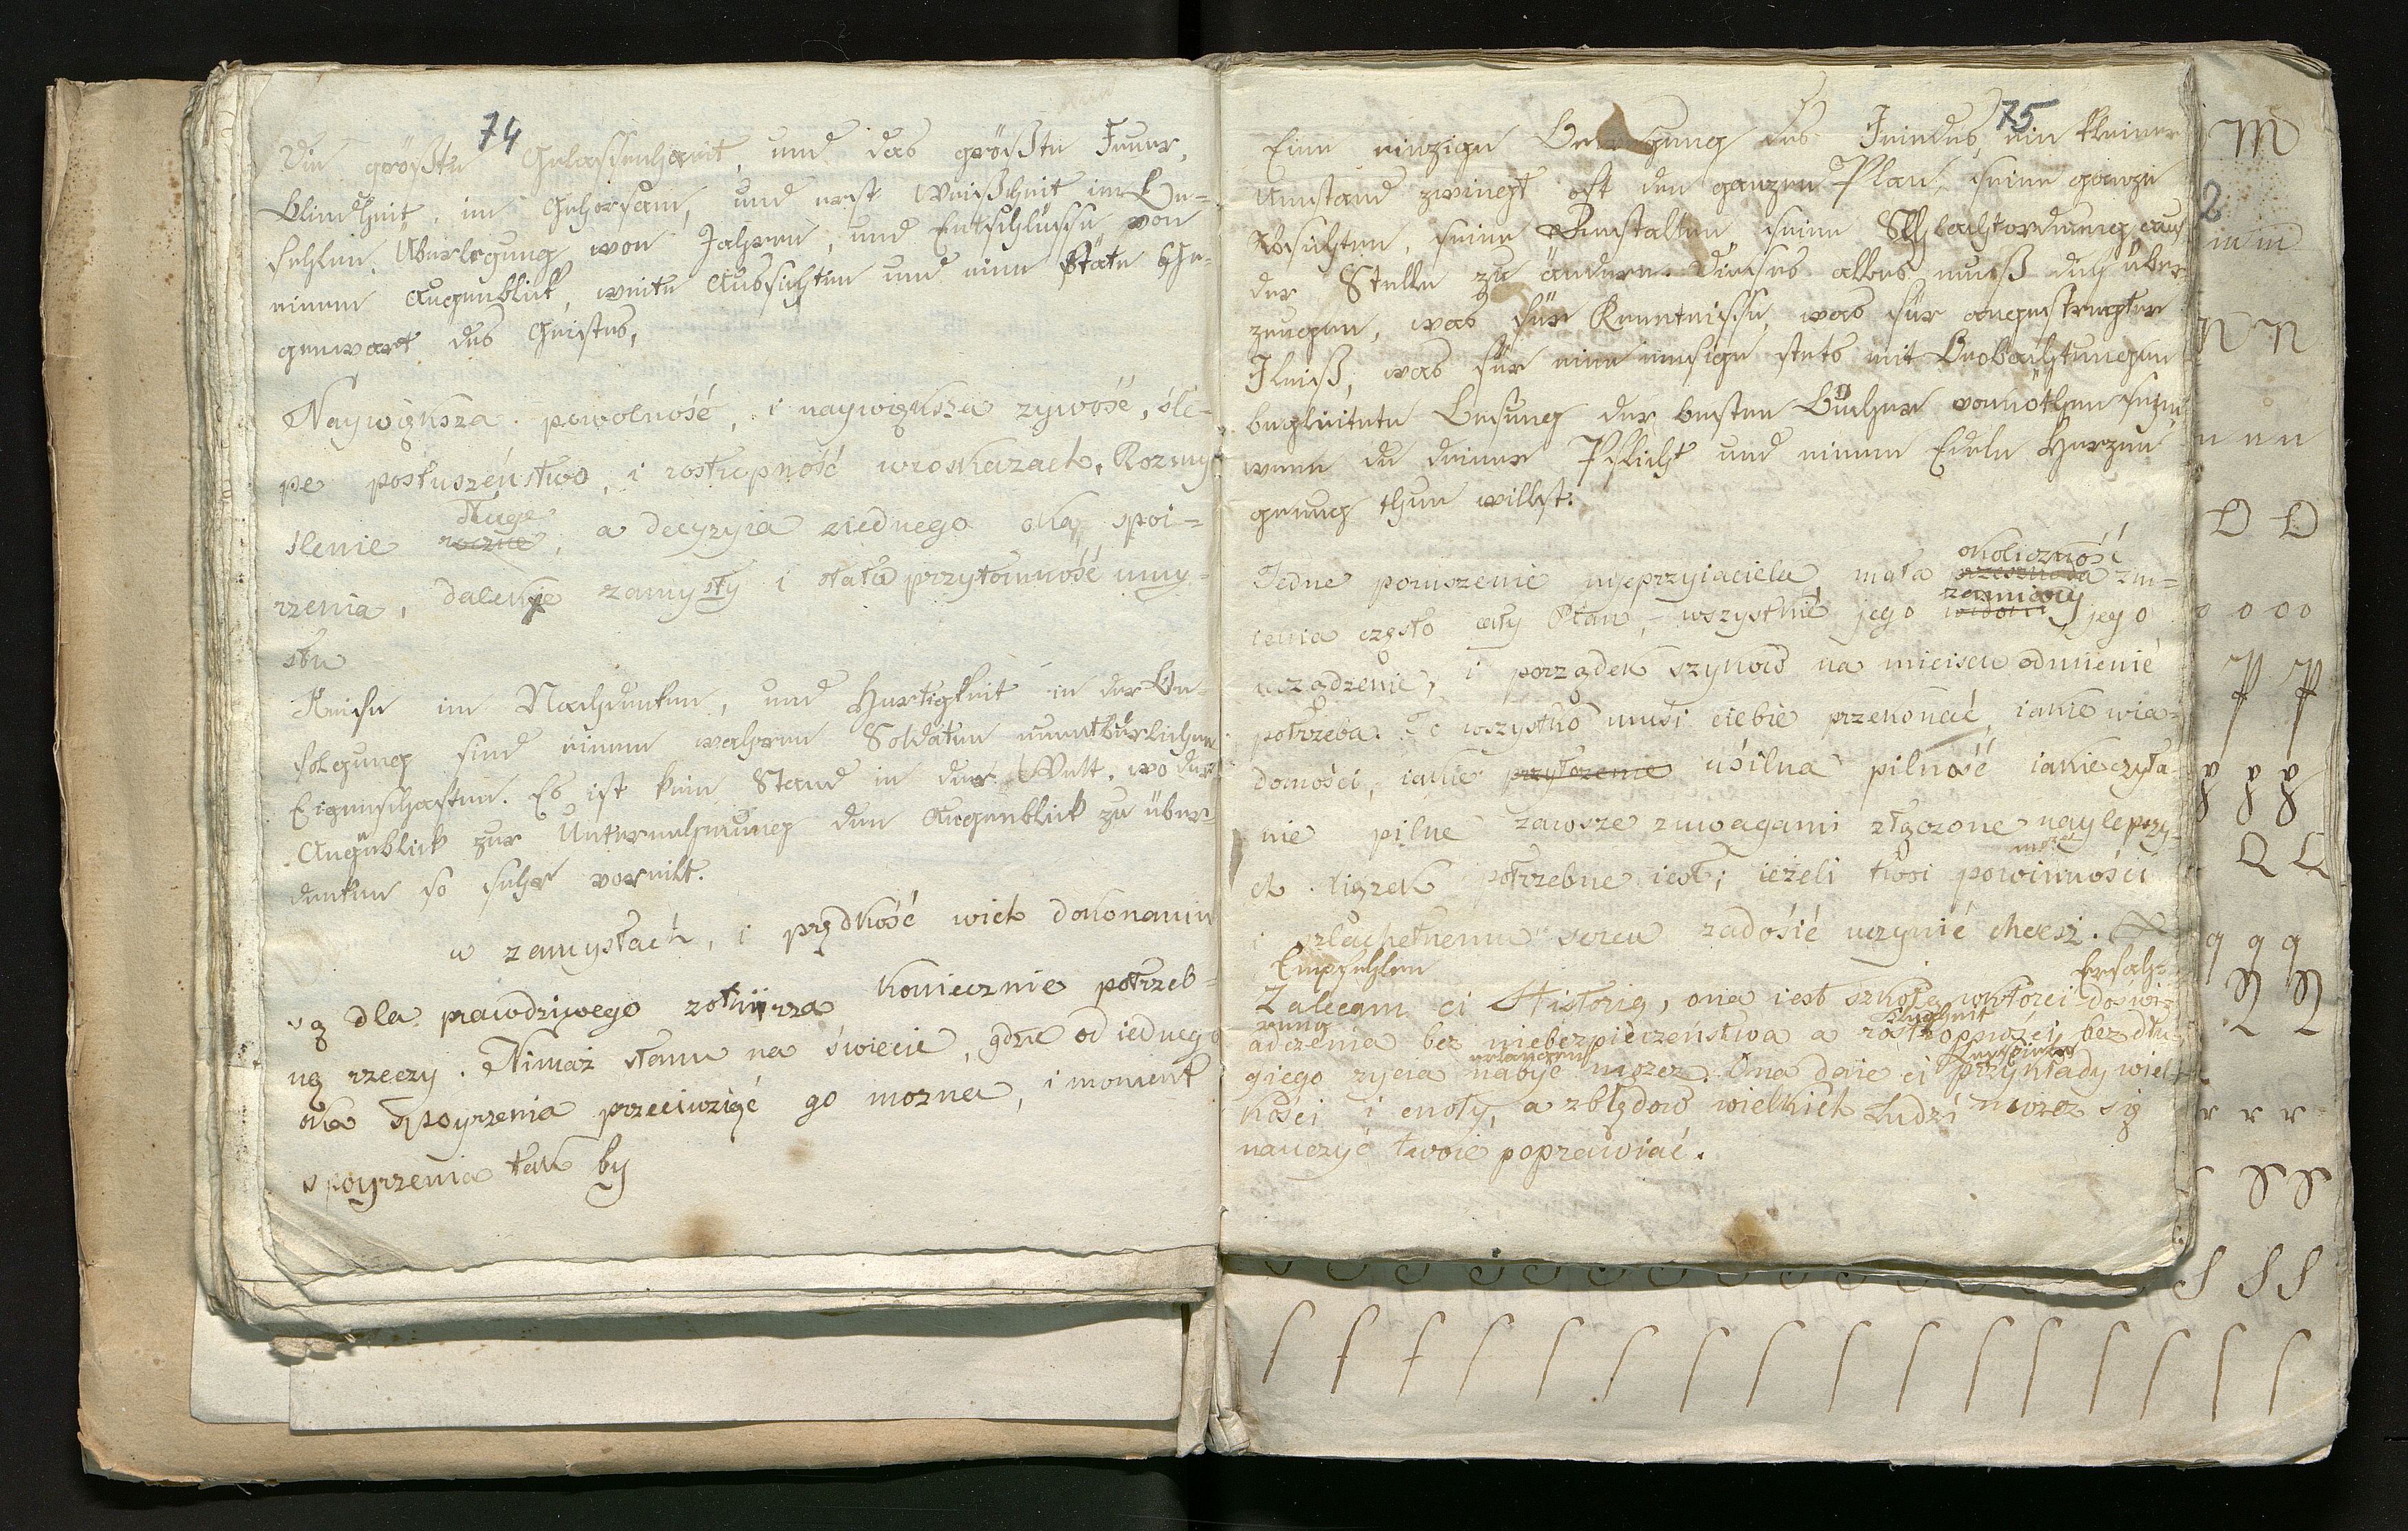 74
Die größte Gelassenheit, und das größte Feuer,
Blindheit im Gehorsam, und erst Weißheit im Be-
fehlen, Überlegung von Jahren, und Entschlüsse von
einem Augenblick, weite Aussichten und eine stäte Ge-
genwart des Geistes,
Naywiększa powolność, i naywiększa zywość, śle-
pe posłuszeństwo, i rostropność wroskazach, Rozmy
długe
ślenie roczne, a decyzyia ziednego oka spoi-
rzenia, dalekie zamysły i stała przytomność umy-
słu
Reise im Nachdenken, und Hurtigkeit in der Be-
folgung sind einem wahren Soldaten unentbärlichen
Eigenschaften. Es ist kein Stand in der Welt, wo der
Augenblick zur Unternehmung den Augenblick zu über-
denken so sehr voreilt.
w zamysłach, i prędkość wich dokonaniu
są dla prawdziwego zołnirza koniecznie potrzeb-
ną rzeczy. Nimaż stanu na świecie, gdzie od iednego
oka spoyrzenia przeciwzięć go mozna, i moment
spoyrzenia tak by
75
Eine einzige Bewegung des Feindes, ein kleiner
Umstand zwingt oft den ganzen Plan, seine ganze
Absichten, seine Anstalten seine Schlachtordnung auf
der Stelle zu ändern. Dieses alles muß dich über
zeugen, was für Kenntnisse, was für angestrengter
Fleiß, was für eine emsige stets mit Beobachtungen
begleitete Lesung der besten Bücher vonnöthen seyn
wenn du deiner Pflicht und einem Edeln Herzen
genug thun willst.
okoliczność
Jedne poruszenie nieprzyiaciela, mała zm-
zamiary
ienia często cały Plan, wszystkie jego widoki jego
urządzenie, i porządek szyków na mieiscu odmienić
potrzeba. To wszystko musi ciebie przekonać, iakie wia-
domości, iakie przyłozenie usilna pilność iakie czyta-
nie pilne zawsze zuwagami złączone naylepszy-
ch xiązek potrzebne iest, ieżeli twoi powinności
i szlachetnemu sercu zadośić uczynić chcesz.
Empfehlen Erfah-
Zalecam ci Historią, ona iest szkołą wktorei doświ-
rung Klugheit
adczenia bez niebezpieczeństwa a rostropności bez dłu
erlangen
giego zycia nabyć mozez. Ona daie ci przykłady wiel
kości i cnoty, a zbłędow wielkich Ludzi mozez się
nauczyć twoie poprawiać.
M
m m
n n
n n n
O O
o o o o
P P
p p p
Q Q
q q q
r r r